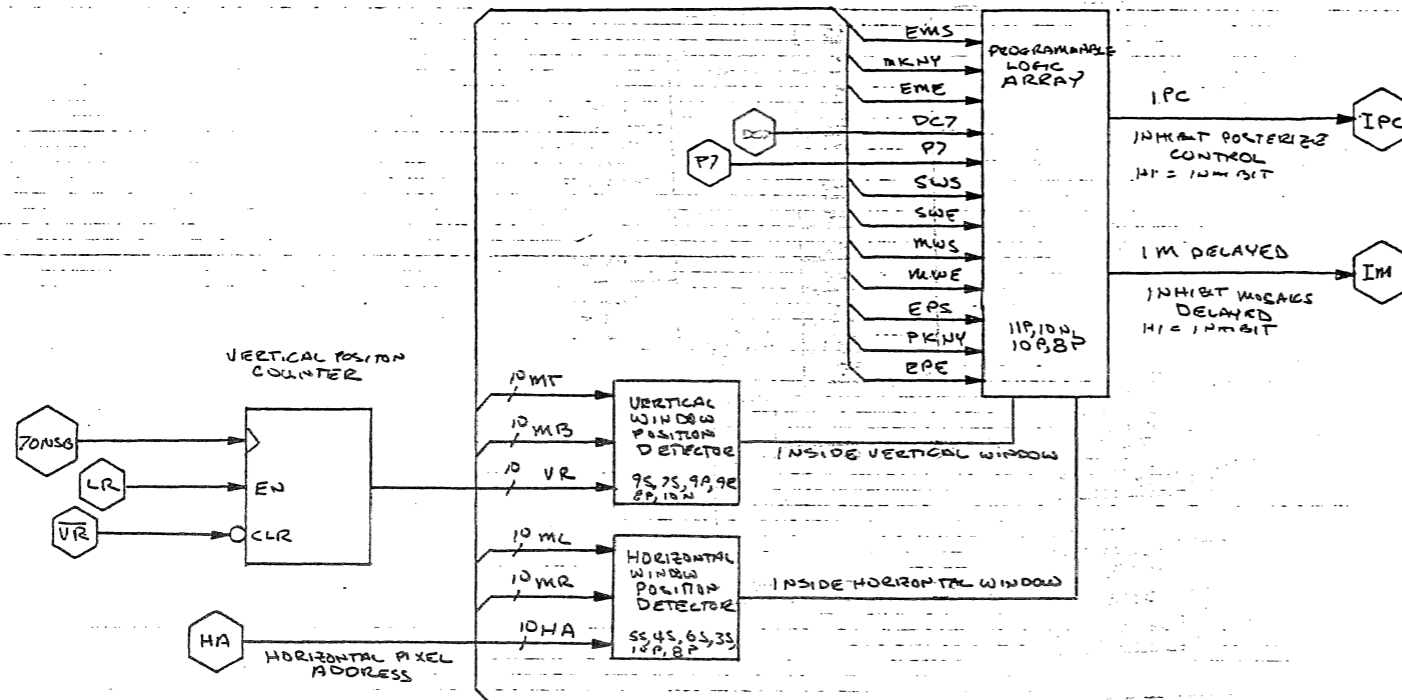 EMS
MKNY
EME
DC7
P7
SWS
SWE
MWS
MWE
EPS
PKNY
EPE
DC7
P7
PROGRAMMABLE
LOGIC
ARRAY
11P, 10N,
10P, 8P
IPC
INHIBIT POSTERIZE
CONTROL
HI = INHIBIT
IPC
IM DELAYED
INHIBIT MOSAICS
DELAYED
HI = INHIBIT
IM
VERTICAL POSITON
COUNTER
70NSB
LR
EN
VR
CLR
10 MT
10 MB
10 VR
VERTICAL
WINDOW
POSITION
DETECTOR
9S, 7S, 9P, 9R
8P, 10N
INSIDE VERTICAL WINDOW
10 ML
10 MR
10 HA
HORIZONTAL
WINDOW
POSITION
DETECTOR
5S, 4S, 6S, 3S,
10P, 8P
INSIDE HORIZONTAL WINDOW
HA
HORIZONTAL PIXEL
ADDRESS